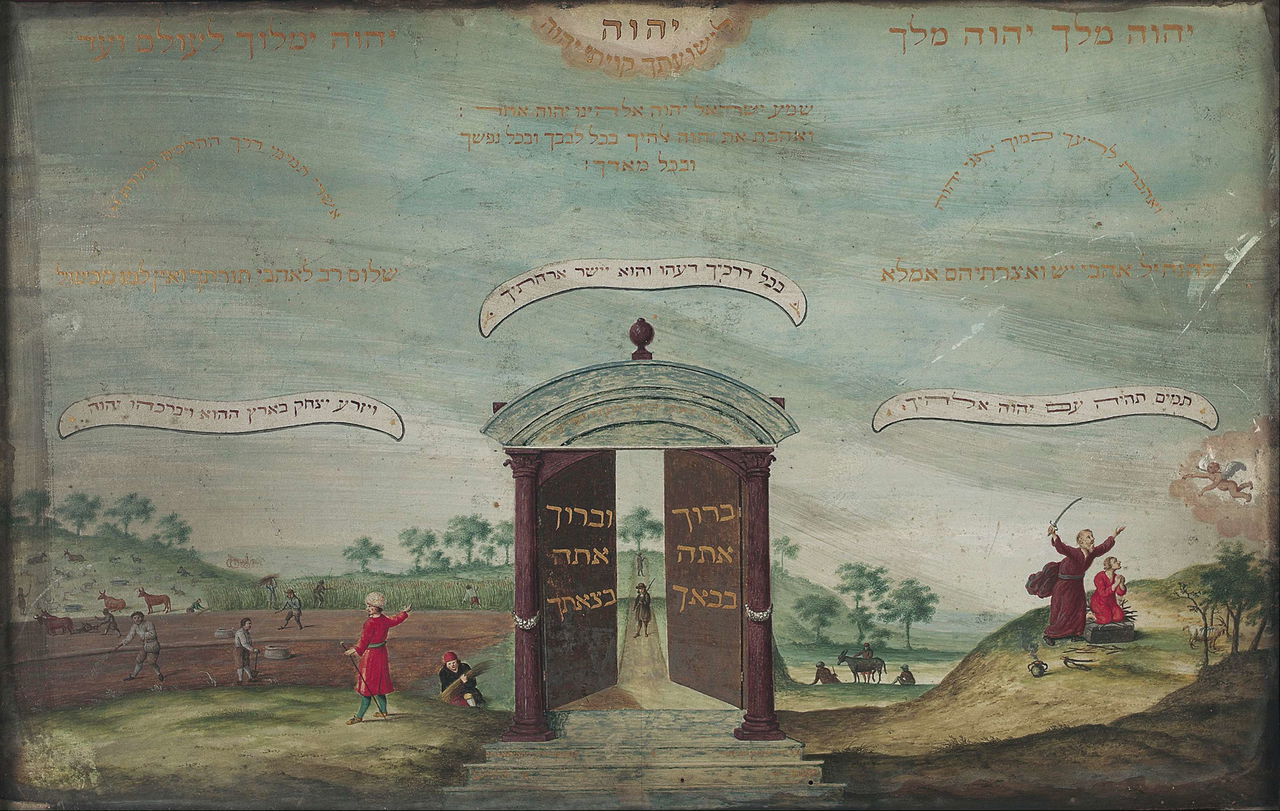 יהוה
לישועתך קויתי יהוה
יהוה מלך יהוה מלך
יהוה ימלוך לעולם ועד
שמע ישראל יהוה אלהינו יהוה אחד :
ואהבת את יהוה אלהיך בכל לבבך ובכל נפשך
ובכל מאדך :
ואהבת לריעך כמוך אני יהוה
אשרי תמימי דרך ההלכים בתורת
להנחיל אהבי יש ואצרתיהם אמלא
שלום רב לאהבי תורתך ואין למו מכשול
בכל דרכיך דעהו והוא יישר ארחתיך
תמים תהיה עם יהוה אלהיך
ויזרע יצחק בארץ ההוא ויברכהו יהוה
ברוך
אתה
בבאך
וברוך
אתה
בצאתך